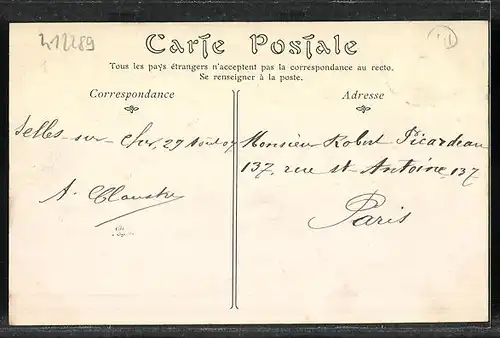 Carte Postale
Tous les pays étrangers n'acceptent pas la correspondance au recto.
Se renseigner à la poste.
Correspondance
Adresse
Selles-sur-Cher, 29 Août 07
Monsieur Robert Picardeau
137, rue St-Antoine, 137
A.
Paris